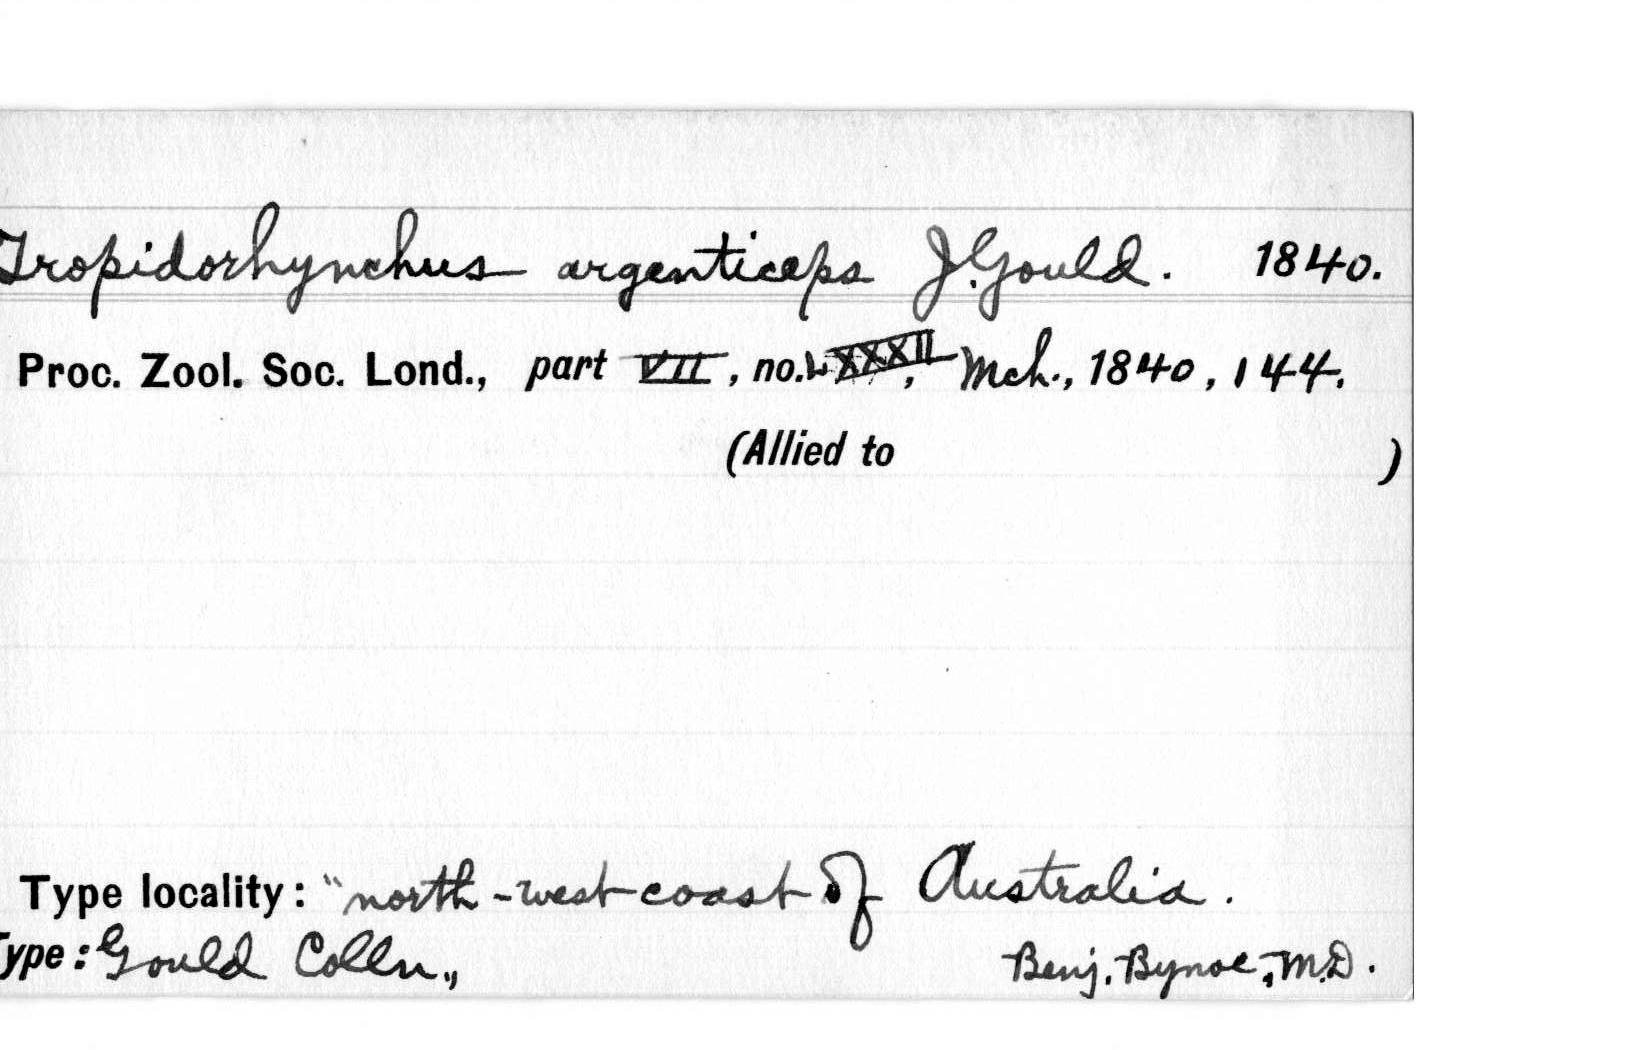 Tropidorhynchus argenticeps J. Gould. 1840.
Proc. Zool. Soc. Lond., part VII, no. LXXXII, Mch., 1840, 144.
(Allied to )
Type locality: "north-west coast of Australia.
Type: Gould Colln., Benj. Bynoe, M.D.